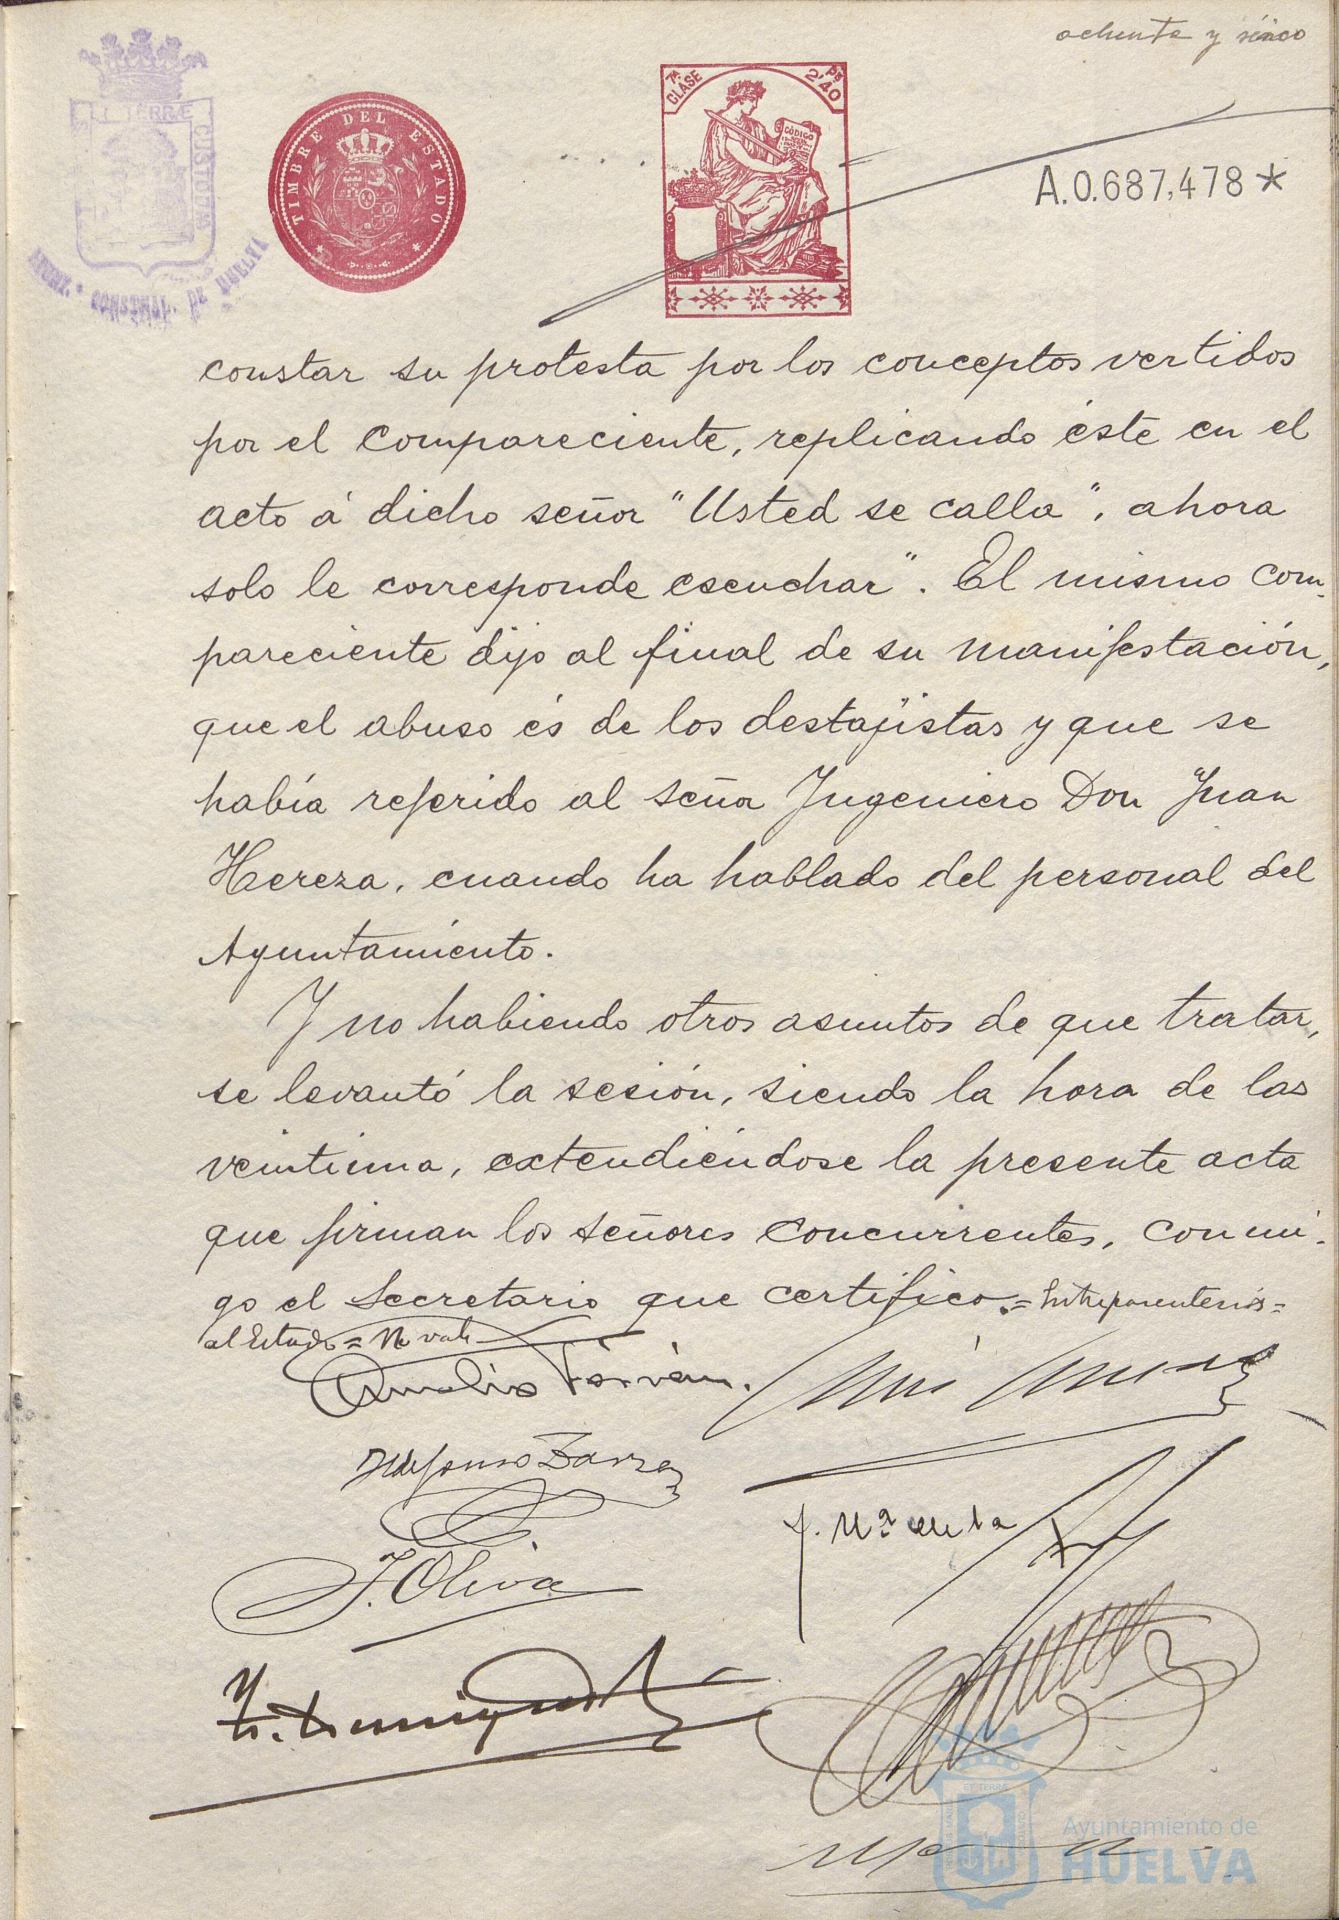 ochenta y sinco
TIMBRE DEL ESTADO
7ª CLASE
Pts 2'40
CÓDIGO
A.0.687,478*
constar su protesta por los conceptos vertidos
por el compareciente, replicando éste en el
acto á dicho señor "Usted se calla", ahora
solo le corresponde escuchar". El mismo com-
pareciente dijo al final de su manifestación,
que el abuso és de los destajistas y que se
había referido al señor Ingeniero Don Juan
Hereza, cuando ha hablado del personal del
Ayuntamiento.
Y no habiendo otros asuntos de que tratar,
se levantó la sesión, siendo la hora de las
veintiuna, extendiéndose la presente acta
que firman los señores concurrentes, conmi-
go el Secretario que certifico.=Entreparentesis=
al Estado=No vale
J. Oliva
Ayuntamiento de
HUELVA